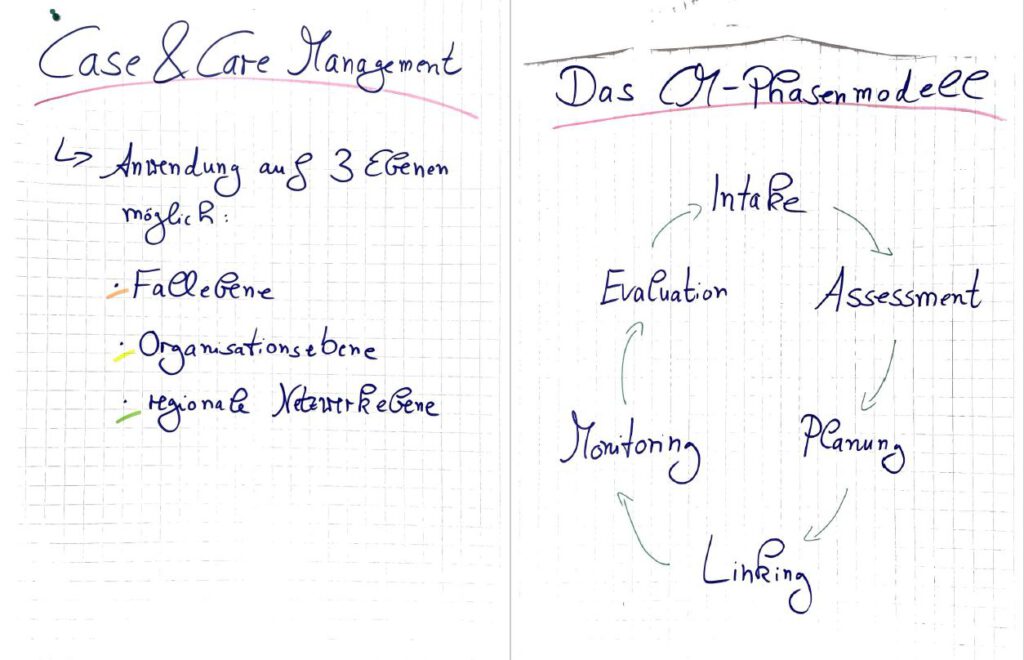 Case & Care Management
↳ Anwendung auf 3 Ebenen
möglich:
· Fallebene
· Organisationsebene
· regionale Netzwerkebene
Das CM-Phasenmodell
Intake
Assessment
Planung
Linking
Monitoring
Evaluation